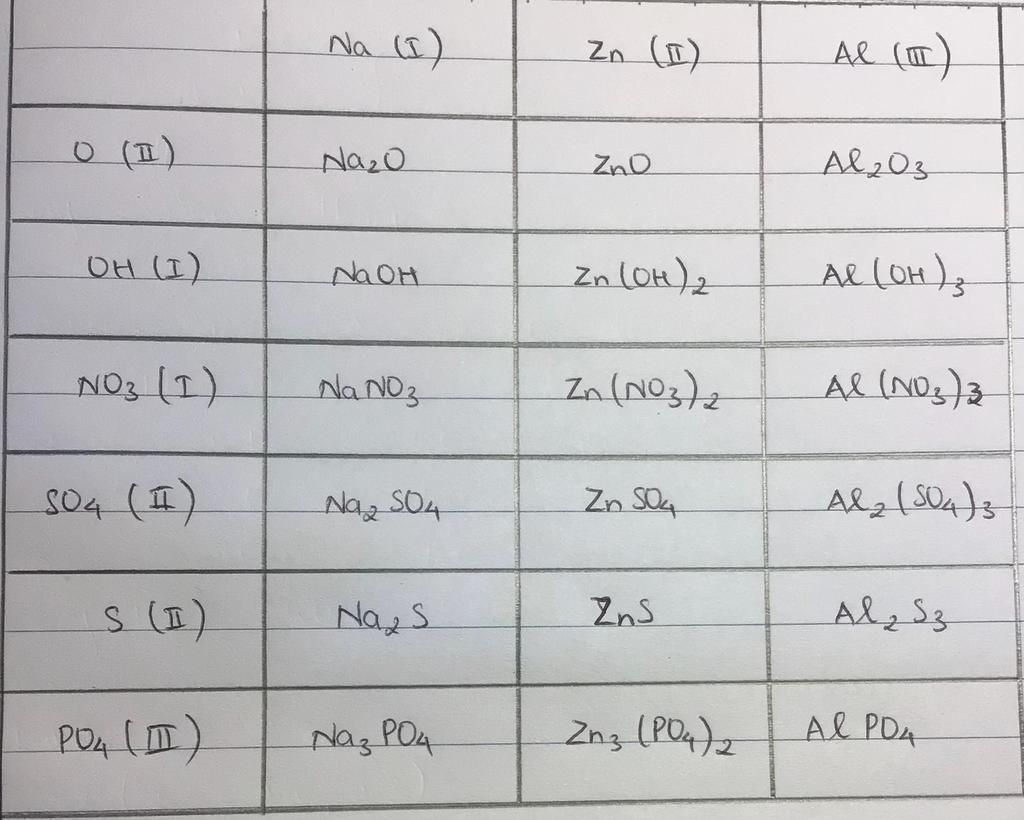 Na (I) Zn (II) Al (III)
O (II) Na2O ZnO Al2O3
OH (I) NaOH Zn(OH)2 Al(OH)3
NO3 (I) NaNO3 Zn(NO3)2 Al(NO3)3
SO4 (II) Na2SO4 ZnSO4 Al2(SO4)3
S (II) Na2S ZnS Al2S3
PO4 (III) Na3PO4 Zn3(PO4)2 AlPO4